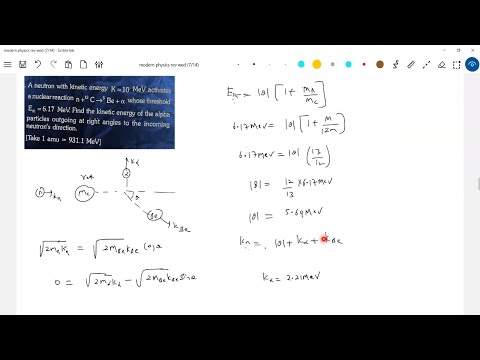 modern physics rev wed (7/14) - Scribble Ink
modern physics rev wed (7/14)
A neutron with kinetic energy K = 10 MeV activates
a nuclear reaction n + ¹²C → ⁹Be + α whose threshold
Eₜₕ = 6.17 MeV. Find the kinetic energy of the alpha
particles outgoing at right angles to the incoming
neutron's direction.
[Take 1 amu = 931.1 MeV]
Kα
α
rest
n Kn
mc
θ
Be
KBe
√2mnKn = √2mBeKBe cosθ
0 = √2mαKα − √2mBeKBe sinθ
Eth = |Q| [1 + mn/mc]
6.17 MeV = |Q| [1 + m/12m]
6.17 MeV = |Q| (13/12)
|Q| = 12/13 × 6.17 MeV
|Q| = 5.69 MeV
Kn = |Q| + Kα + KBe
Kα = 2.21 MeV